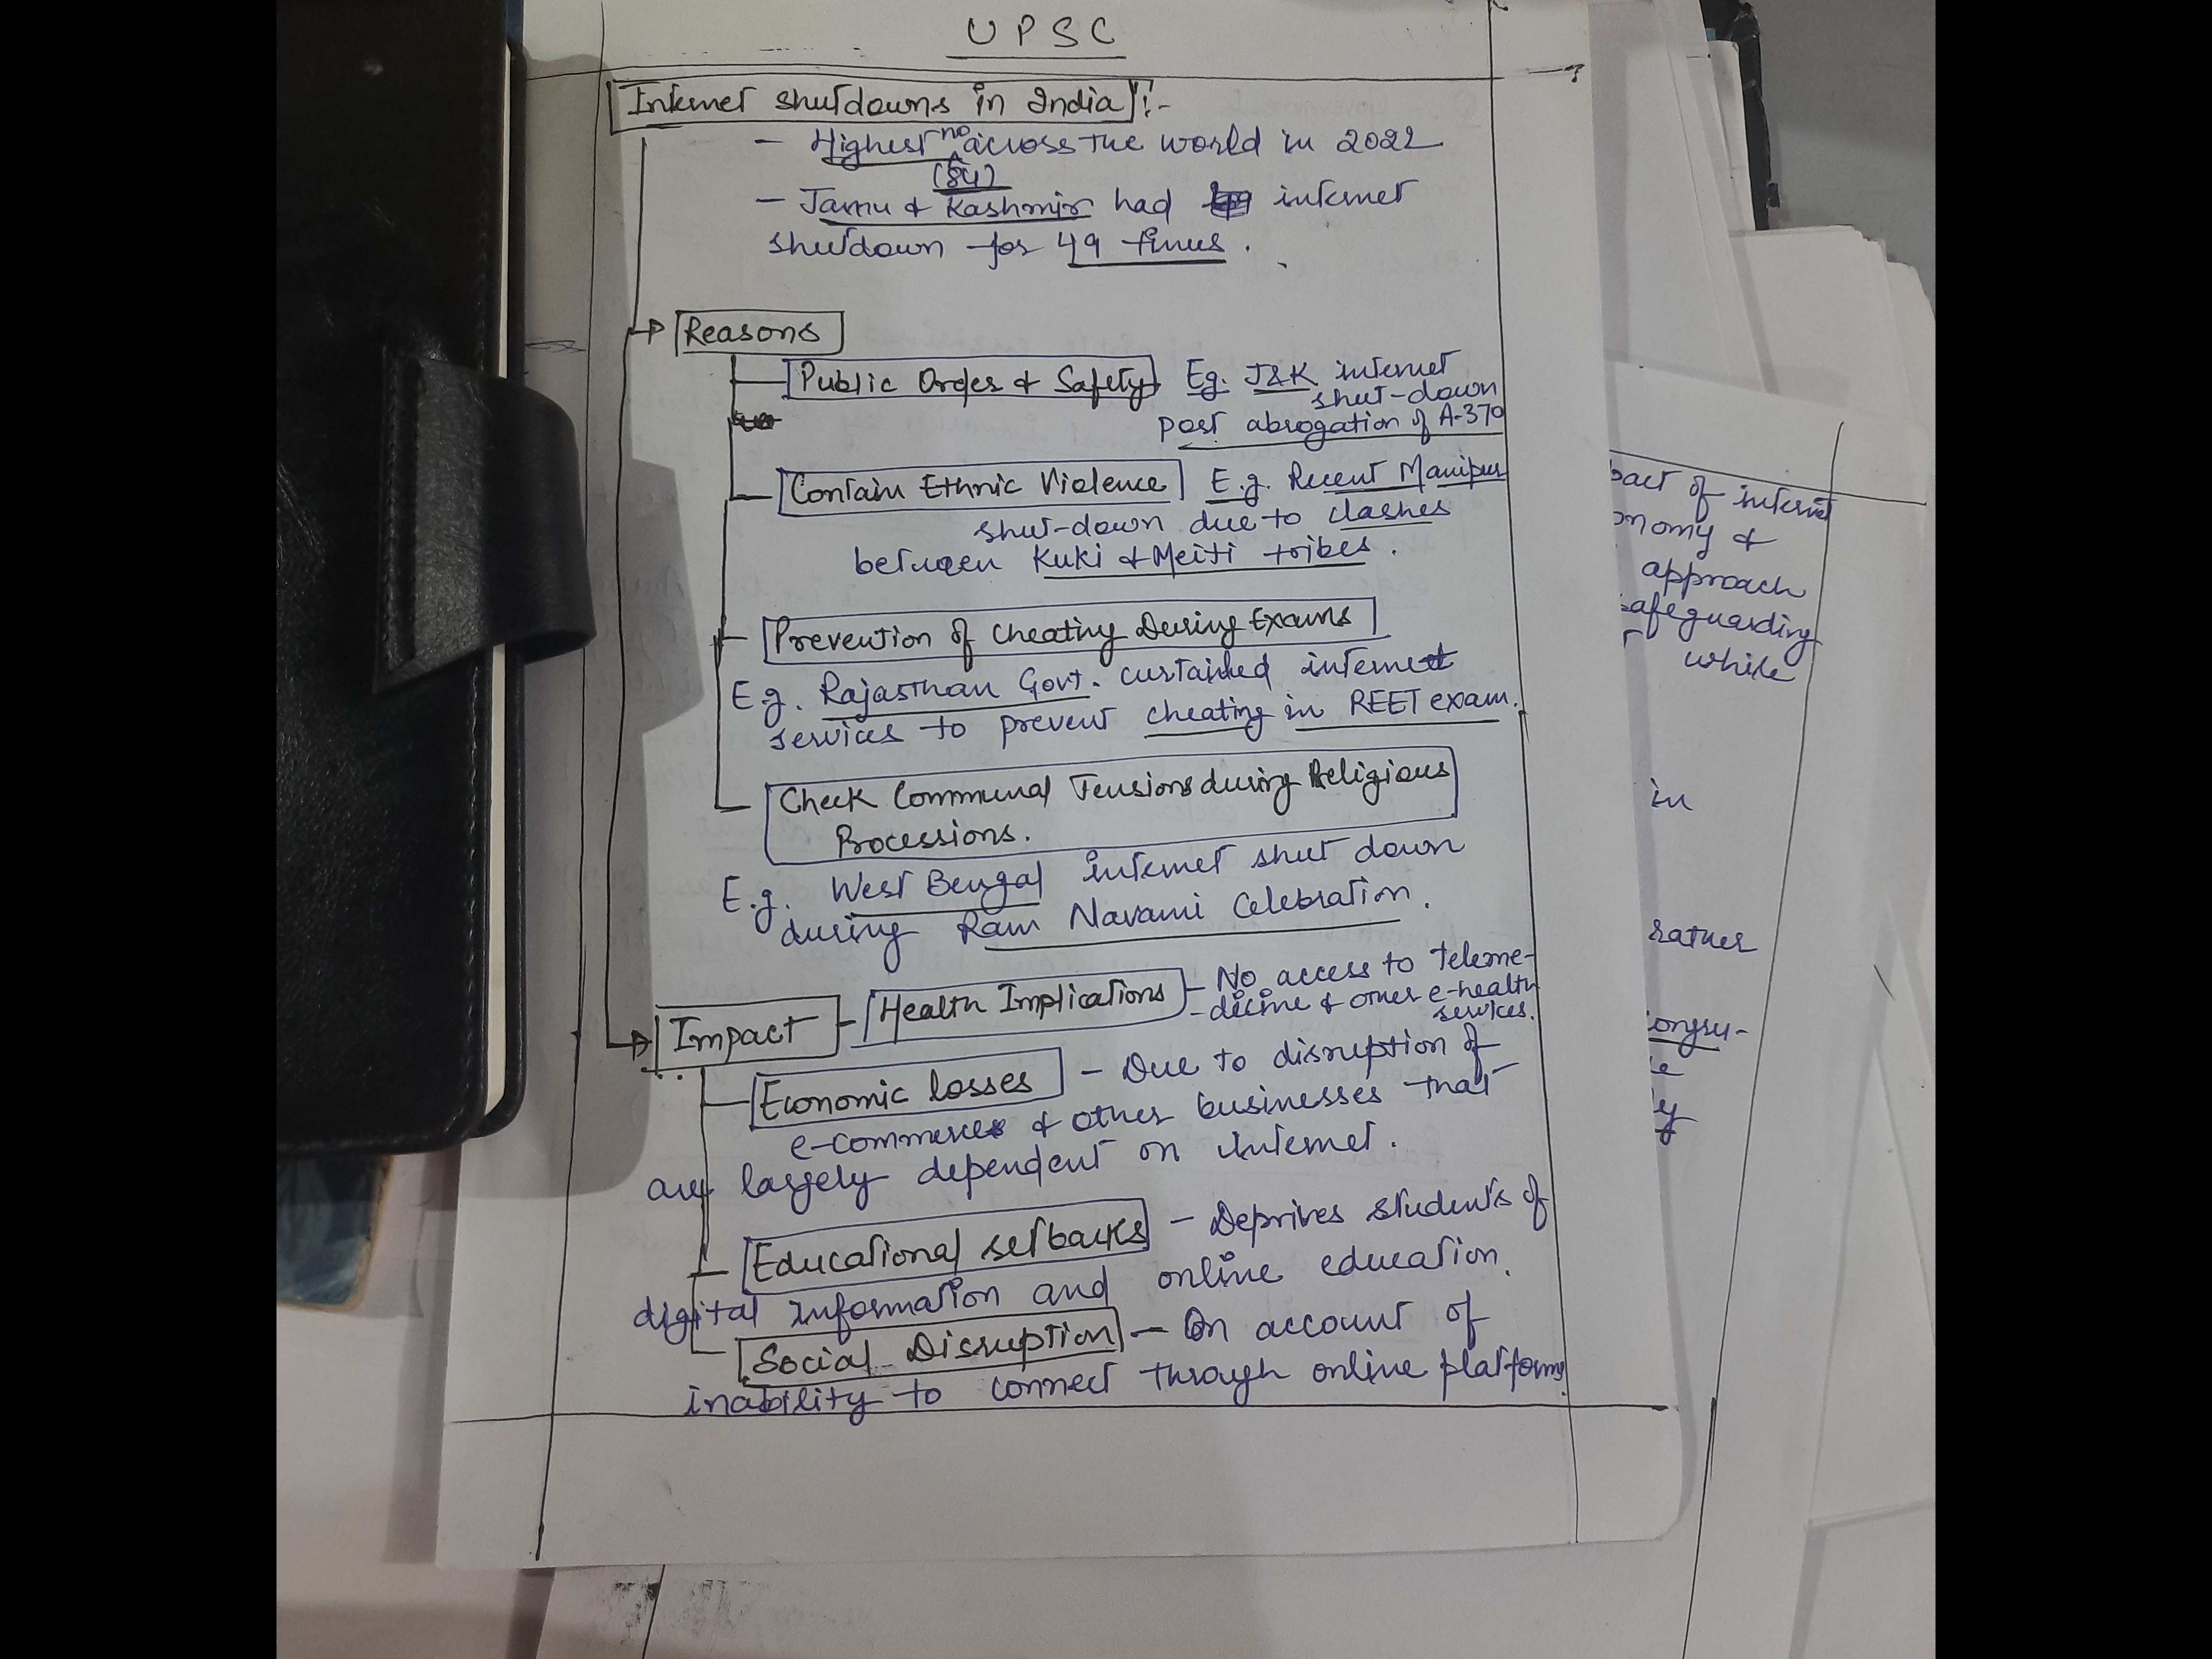 UPSC
Internet shutdowns in India":-
- Highest no across the world in 2022
(84)
- Jamu & Kashmir had internet
shutdown for 49 times.
Reasons
Public Order & Safety Eg. J&K internet
shut-down
post abrogation of A-370
Contain Ethnic Violence E.g. Recent Manipur
shut-down due to clashes
between Kuki & Meiti tribes.
Prevention of Cheating During Exams
E.g. Rajasthan Govt. curtailed internet
services to prevent cheating in REET exam.
Check Communal Tensions during Religious
Processions.
E.g. West Bengal internet shut down
during Ram Navami Celebration.
Impact - Health Implications - No access to teleme-
-dicine & other e-health
services.
Economic losses - Due to disruption of
e-commerce & other businesses that
are largely dependent on internet.
Educational setbacks - Deprives students of
digital information and online education.
Social Disruption - On account of
inability to connect through online platforms.
of internet
&
approach
safeguarding
while
in
rather